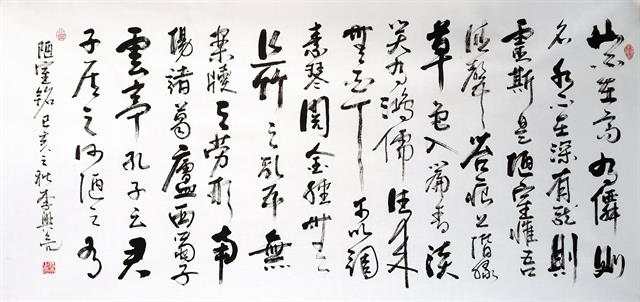 山不在高有僊則
名水不在深有龍則
靈斯是陋室惟吾
德馨苔痕上階綠
草色入簾青談
笑有鴻儒往來
無白丁可以調
素琴閱金經無
絲竹之亂耳無
案牘之勞形南
陽諸葛廬西蜀子
雲亭孔子云君
子居之何陋之有
陋室銘己亥之秋李興亮